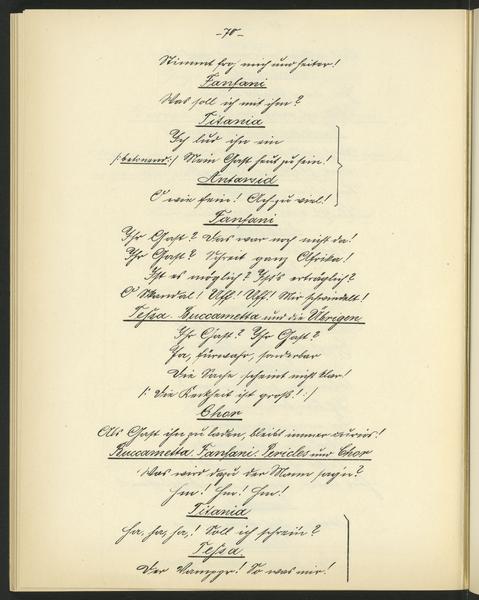 -70-
Stimmt froh mich und heiter!
Fanfani
Was soll ich mit ihm?
Titania
Ich lud ihn ein
/:betonend:/ Mein Gast heut zu sein!
Antarsid
O wie fein! Ach zu viel!
Fanfani
Ihr Gast? Das war noch nicht da!
Ihr Gast? Schreit ganz Afrika!
Ist es möglich? Ist's erträglich?
O Skandal! Uff! Uff! Mir schwindelt!
Tessa. Buccametta und die Übrigen
Ihr Gast? Ihr Gast?
Ja, fürwahr, sonderbar
Die Sache scheint nicht klar!
/: Die Keckheit ist groß! :/
Chor
Als Gast ihn zu laden, bleibt immer curios!
Buccametta. Fanfani. Pericles und Chor
Was wird dazu der Mann sag'n?
Hm! Hm! Hm!
Titania
Ha, ha, ha! Soll ich schrei'n?
Tessa.
Der Vampyr! So was mir!